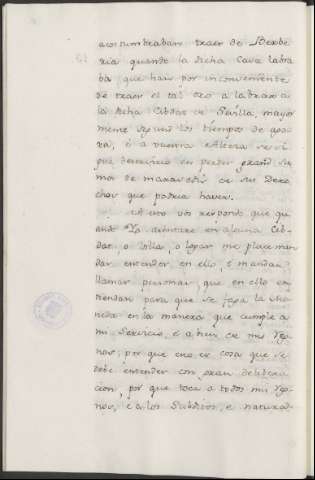 acostumbraban traer de Berbe-
ria quando la dicha Casa labra-
ba; que han por inconveniente
de traer el tal oro a labrar a
la dicha Cibdad de Sevilla, mayor
mente segund los tiempos de ago-
ra, é a vuestra Alteza se si-
gue deservicio en perder grand su-
ma de maravedis de sus Dere-
chos que podria haver.
A esto vos respondo que qu-
ando Yo estoviere en alguna Cib-
dat, o Villa, o logar me place man-
dar entender en ello, é mandaré
llamar personas, que en ello en-
tiendan para que se faga la Mo-
neda en la manera que cumple a
mi Servicio, é a bien de mis Reg-
nos; por que esta es cosa que se
debe entender con gran delibera-
cion, por que toca a todos mis Reg-
nos, é a los Subditos, e natural-